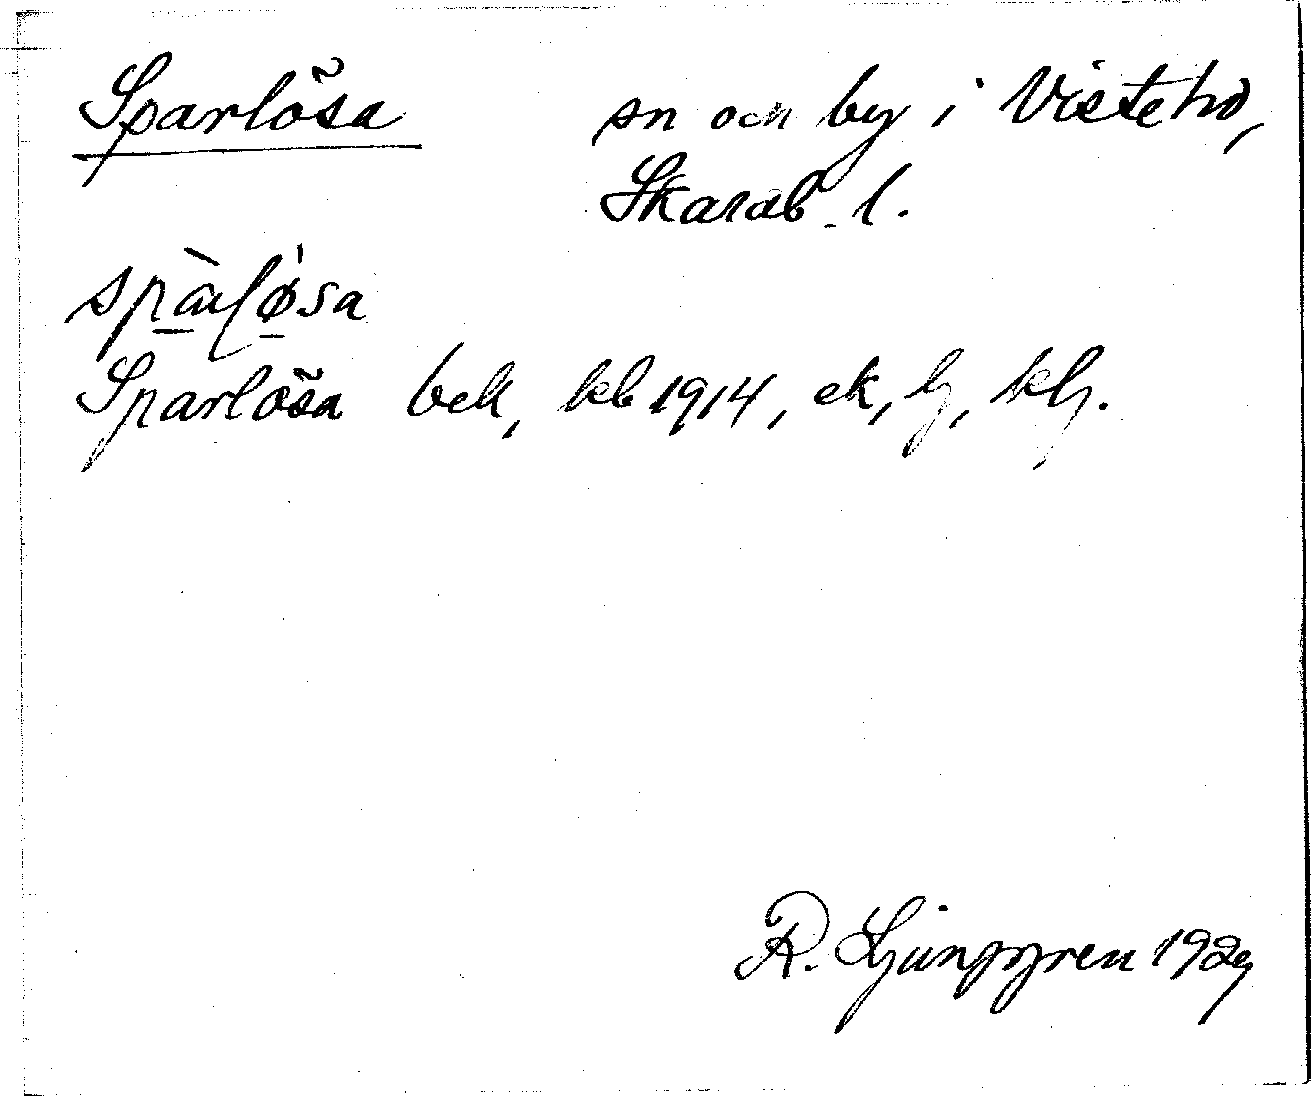 Sparlösa sn och by i Viste hd,
Skarab. l.
spàrløsa
Sparlösa bek, kb 1914, ek, lj, klj.
R. Ljunggren 1929